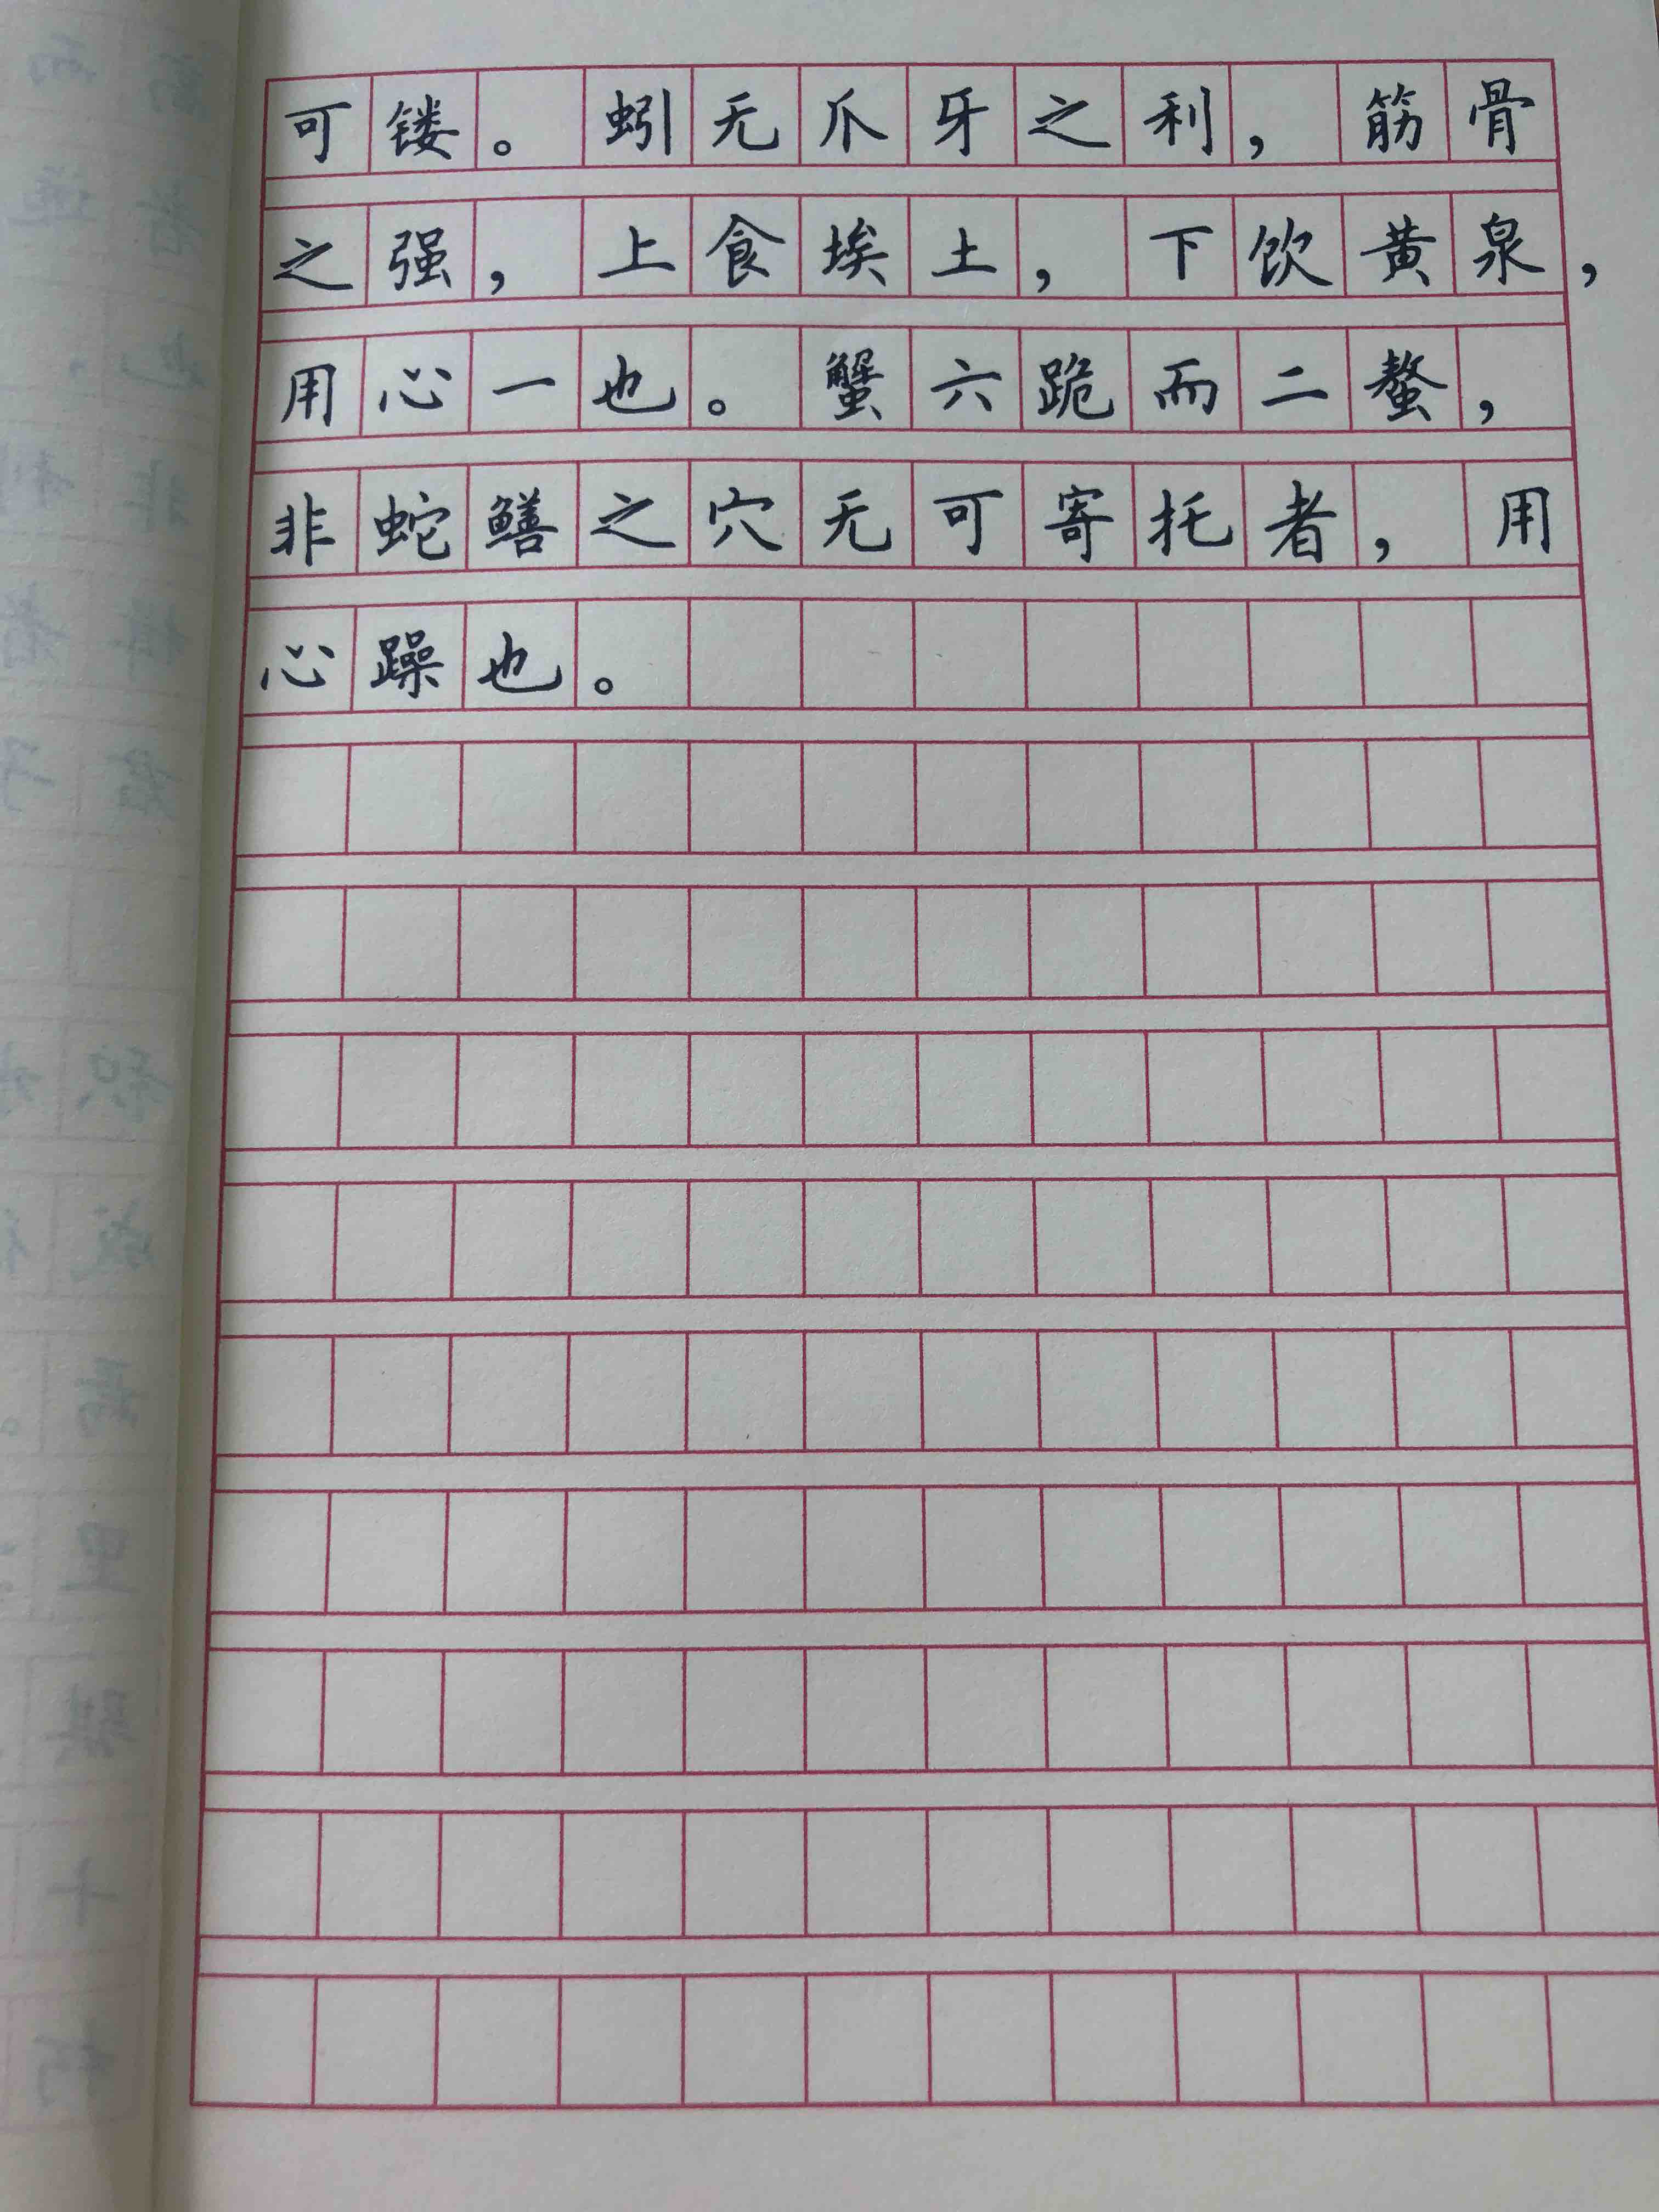 可镂。蚓无爪牙之利，筋骨
之强，上食埃土，下饮黄泉，
用心一也。蟹六跪而二螯，
非蛇鳝之穴无可寄托者，用
心躁也。